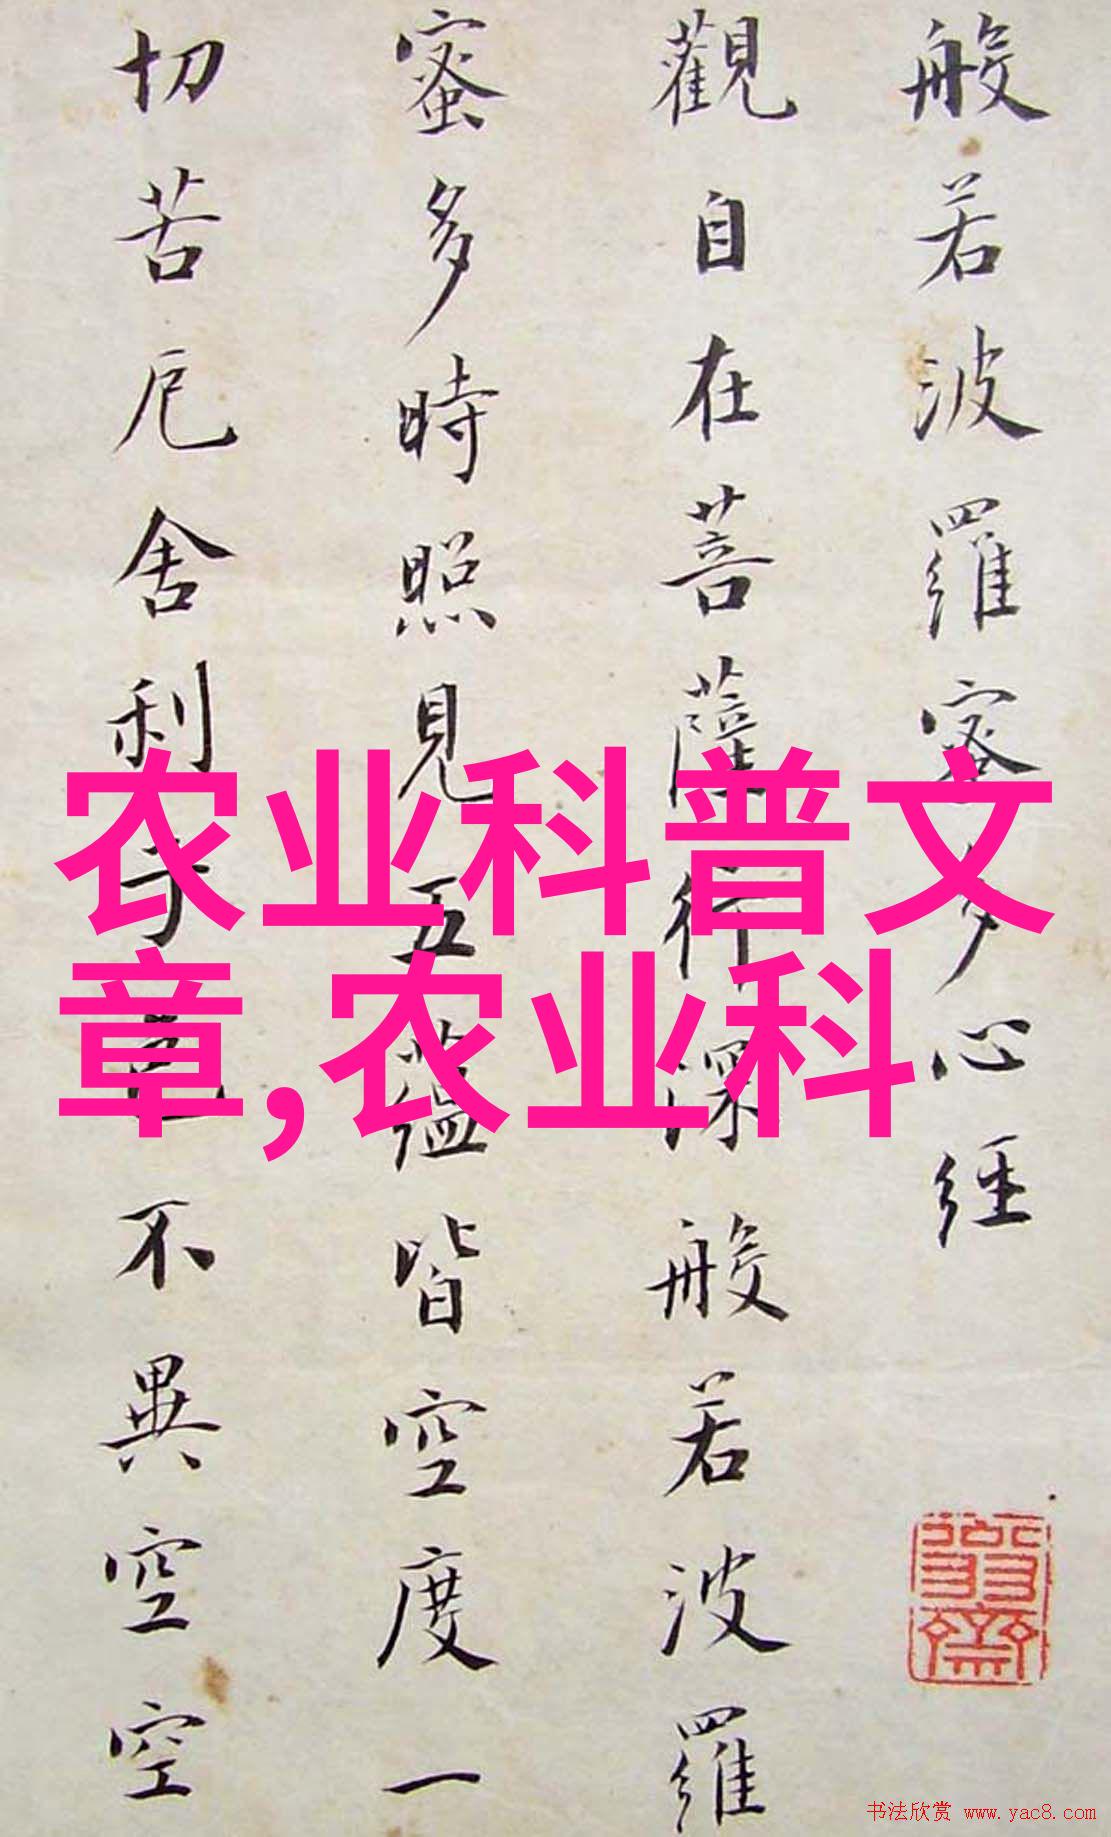 般若波羅蜜多心經
觀自在菩薩行深般若波羅
蜜多時照見五蘊皆空度一
切苦厄舍利子色不異空空
农业科普文
章,农业科
书法欣赏 www.yac8.com